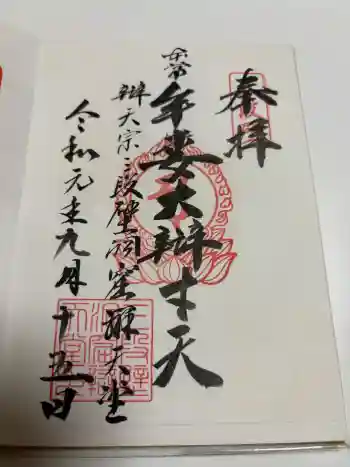 奉拝
牟婁大辯才天
辨天宗三段壁洞窟辨天堂
令和元年九月十五日